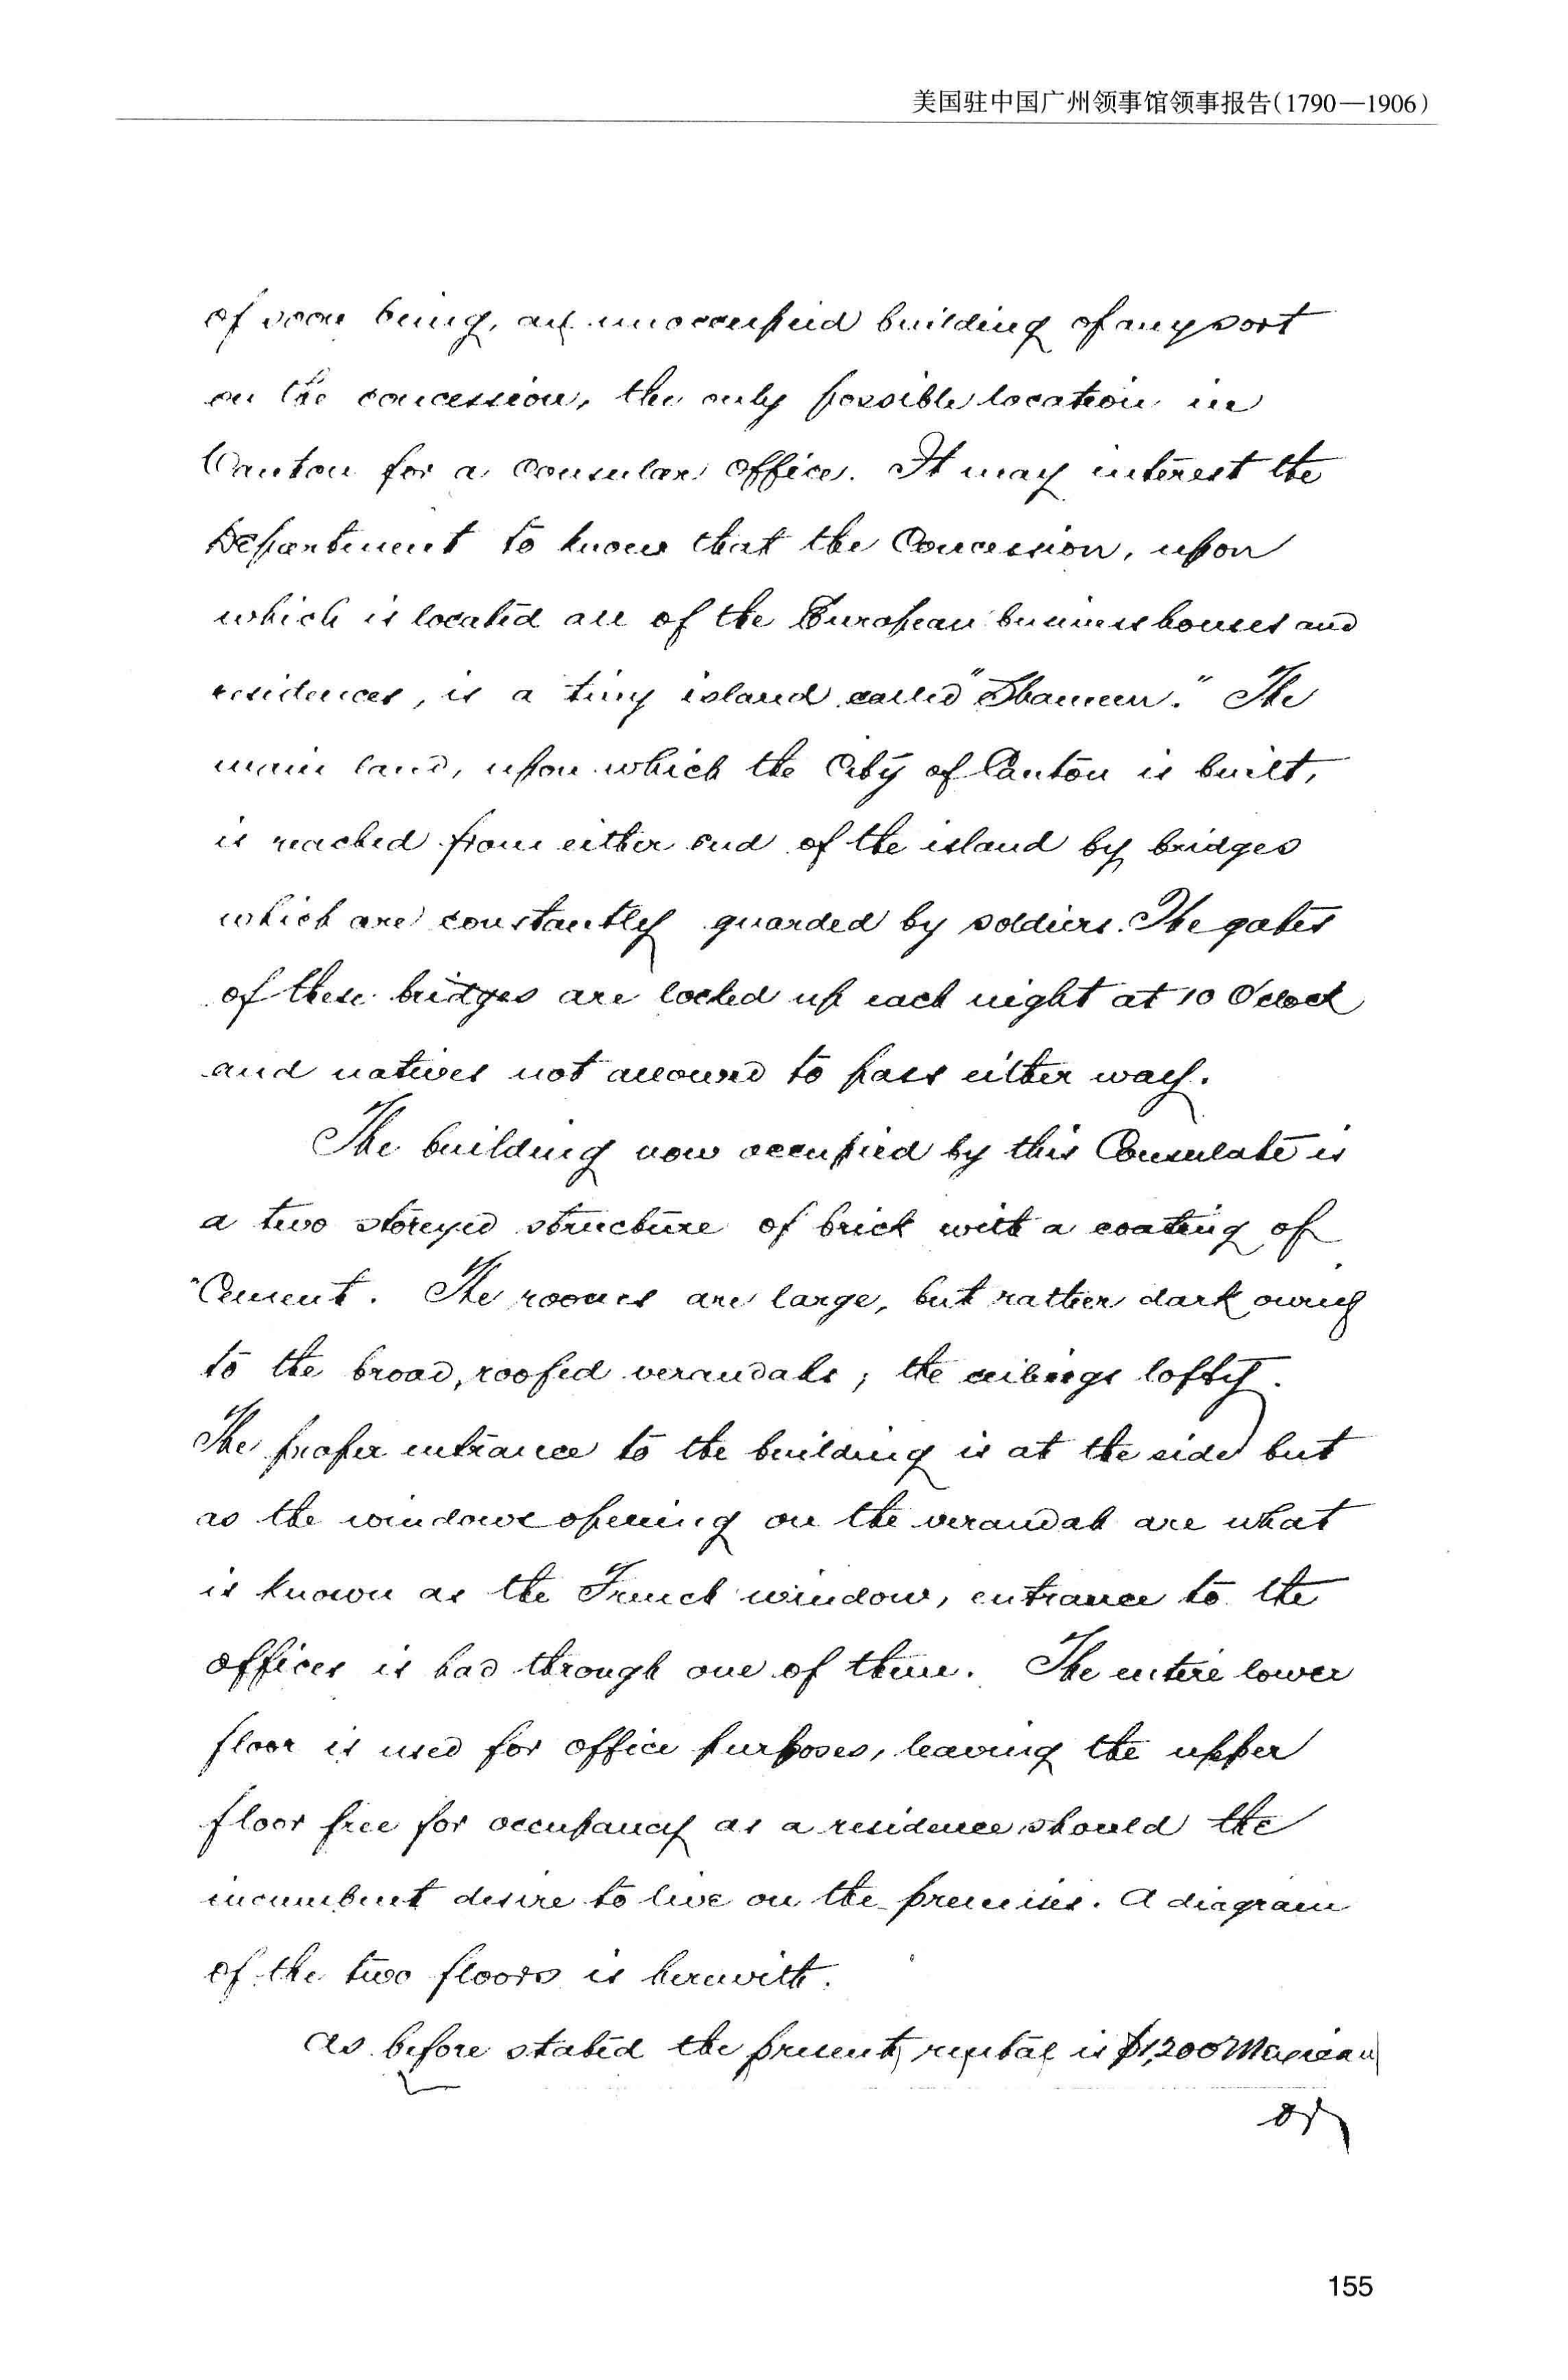 美国驻中国广州领事馆领事报告(1790—1906)
of soon being, an unoccupied building of any sort
on the concession, the only possible location in
Canton for a Consular Office. It may interest the
Department to know that the Concession, upon
which is located all of the European business houses and
residences, is a tiny island called "Shameen." The
main land, upon which the City of Canton is built,
is reached from either end of the island by bridges
which are constantly guarded by soldiers. The gates
of these bridges are locked up each night at 10 O'clock
and natives not allowed to pass either way.
The building now occupied by this Consulate is
a two storeyed structure of brick with a coating of
Cement. The rooms are large, but rather dark owing
to the broad, roofed verandahs; the ceilings lofty.
The proper entrance to the building is at the side but
as the windows opening on the verandah are what
is known as the French window, entrance to the
offices is had through one of them. The entire lower
floor is used for office purposes, leaving the upper
floor free for occupancy as a residence should the
incumbent desire to live on the premises. A diagram
of the two floors is herewith.
As before stated the present rental is $1,200 Mexican
or
155